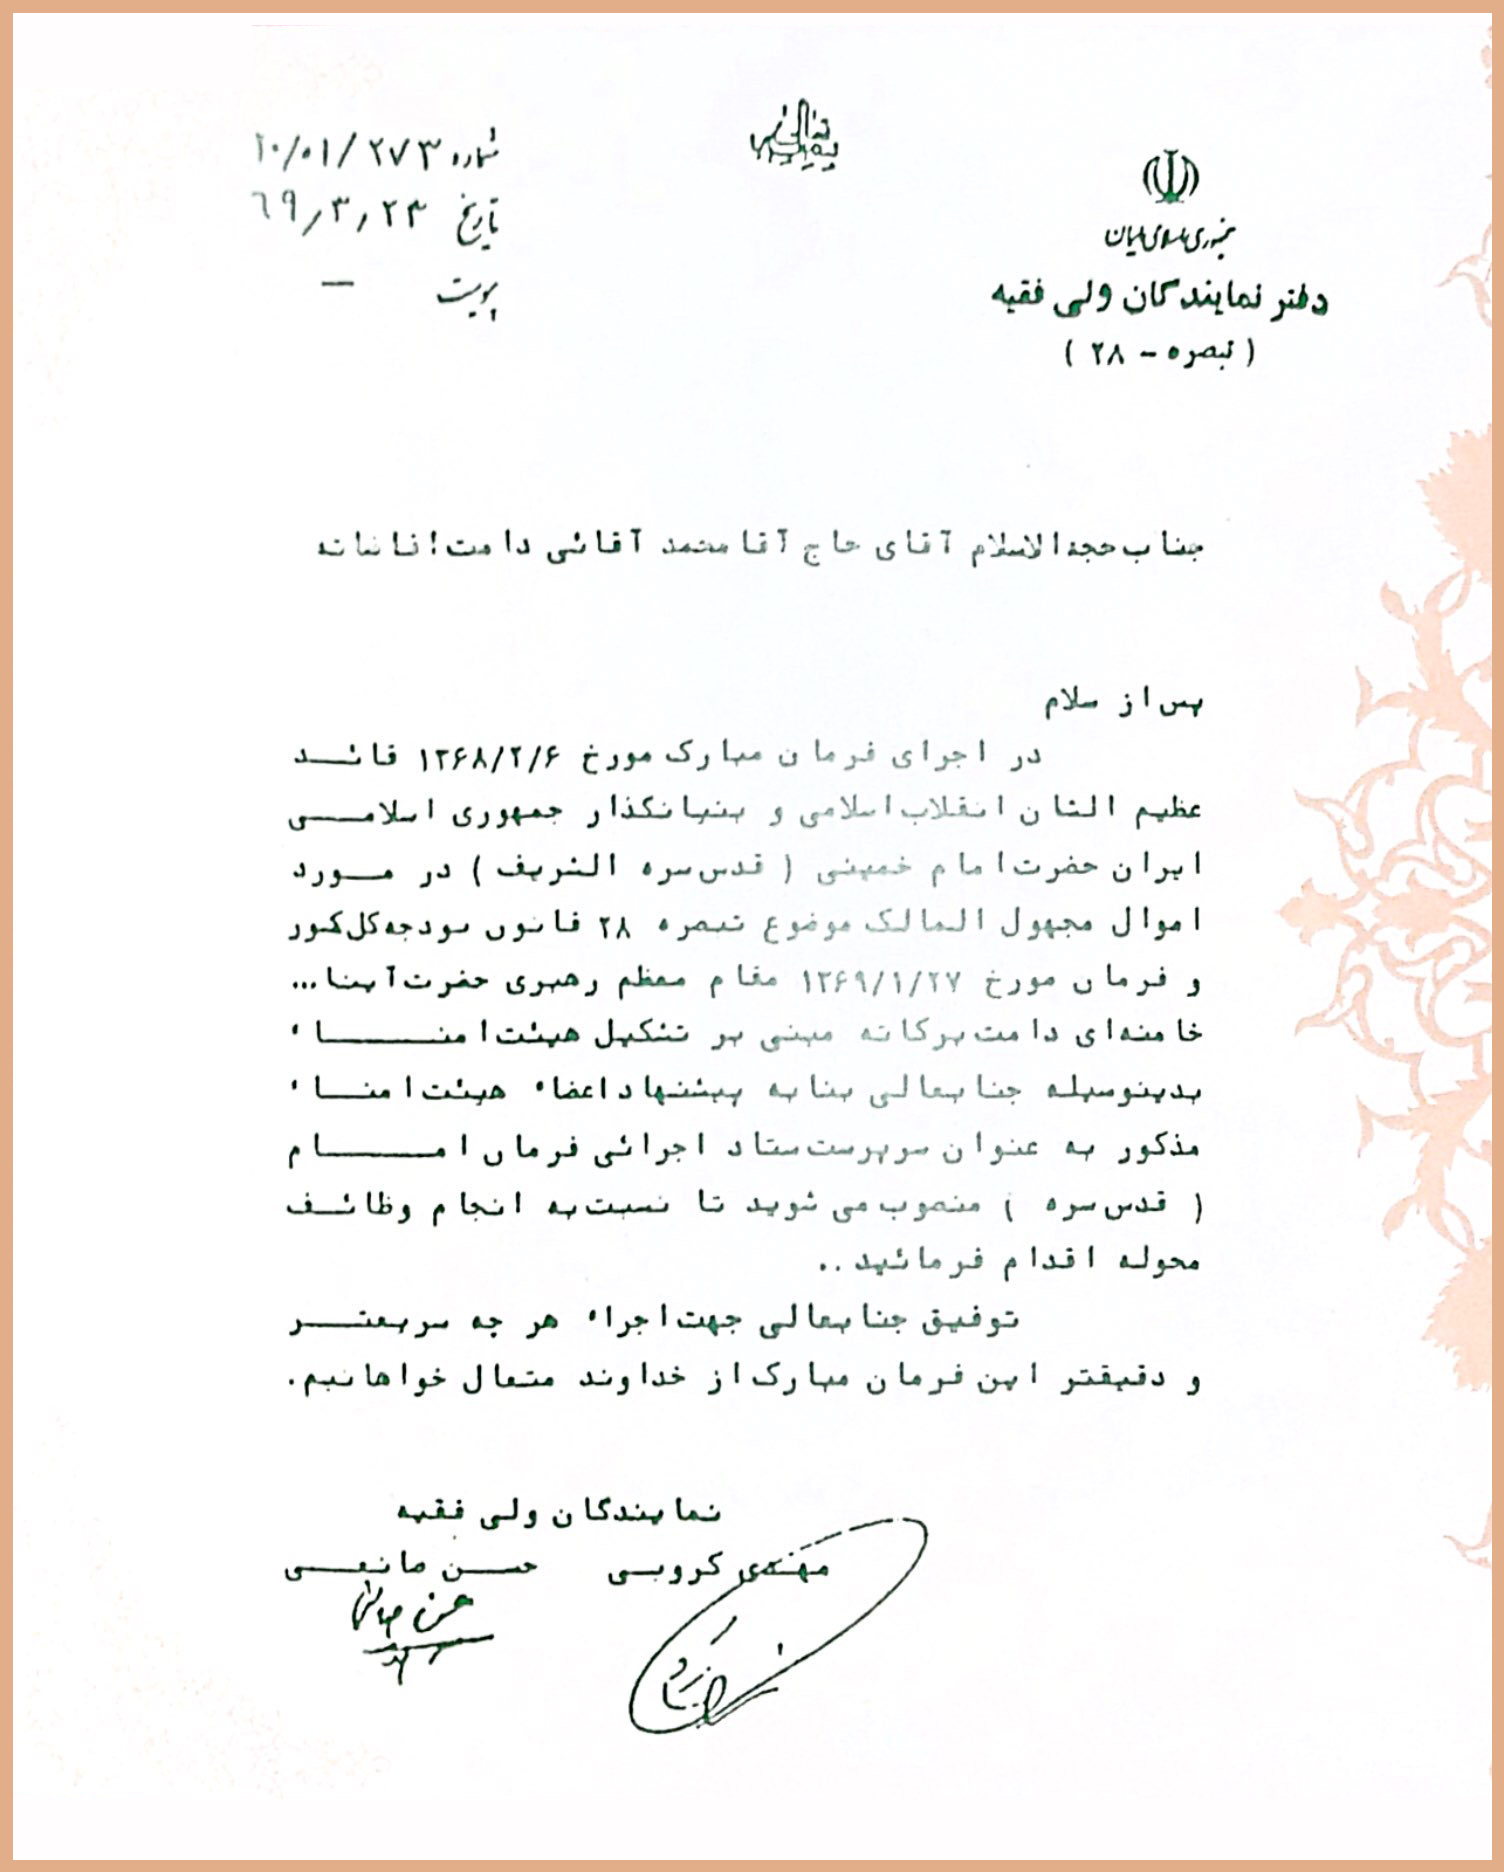 بسمه تعالی
جمهوری اسلامی ایران
دفتر نمایندگان ولی فقیه
( تبصره - ۲۸ )
شماره ۲۰/۰۱/۲۷۳
تاریخ ۶۹/۳/۲۳
پیوست —
جناب حجةالاسلام آقای حاج آقا محمد آقائی دامت افاضاته
پس از سلام
در اجرای فرمان مبارک مورخ ۱۳۶۸/۲/۶ قائد
عظیم الشان انقلاب اسلامی و بنیانگذار جمهوری اسلامی
ایران حضرت امام خمینی ( قدس سره الشریف ) در مورد
اموال مجهول المالک موضوع تبصره ۲۸ قانون بودجه کل کشور
و فرمان مورخ ۱۳۶۹/۱/۲۷ مقام معظم رهبری حضرت آیتا...
خامنه‌ای دامت برکاته مبنی بر تشکیل هیئت امناء
بدینوسیله جنابعالی بنا به پیشنهاد اعضاء هیئت امناء
مذکور به عنوان سرپرست ستاد اجرائی فرمان امام
( قدس سره ) منصوب می شوید تا نسبت به انجام وظائف
محوله اقدام فرمائید ..
توفیق جنابعالی جهت اجراء هر چه سریعتر
و دقیقتر این فرمان مبارک از خداوند متعال خواهانیم.
نمایندگان ولی فقیه
مهدی کروبی حسن صانعی
حسن صانعی